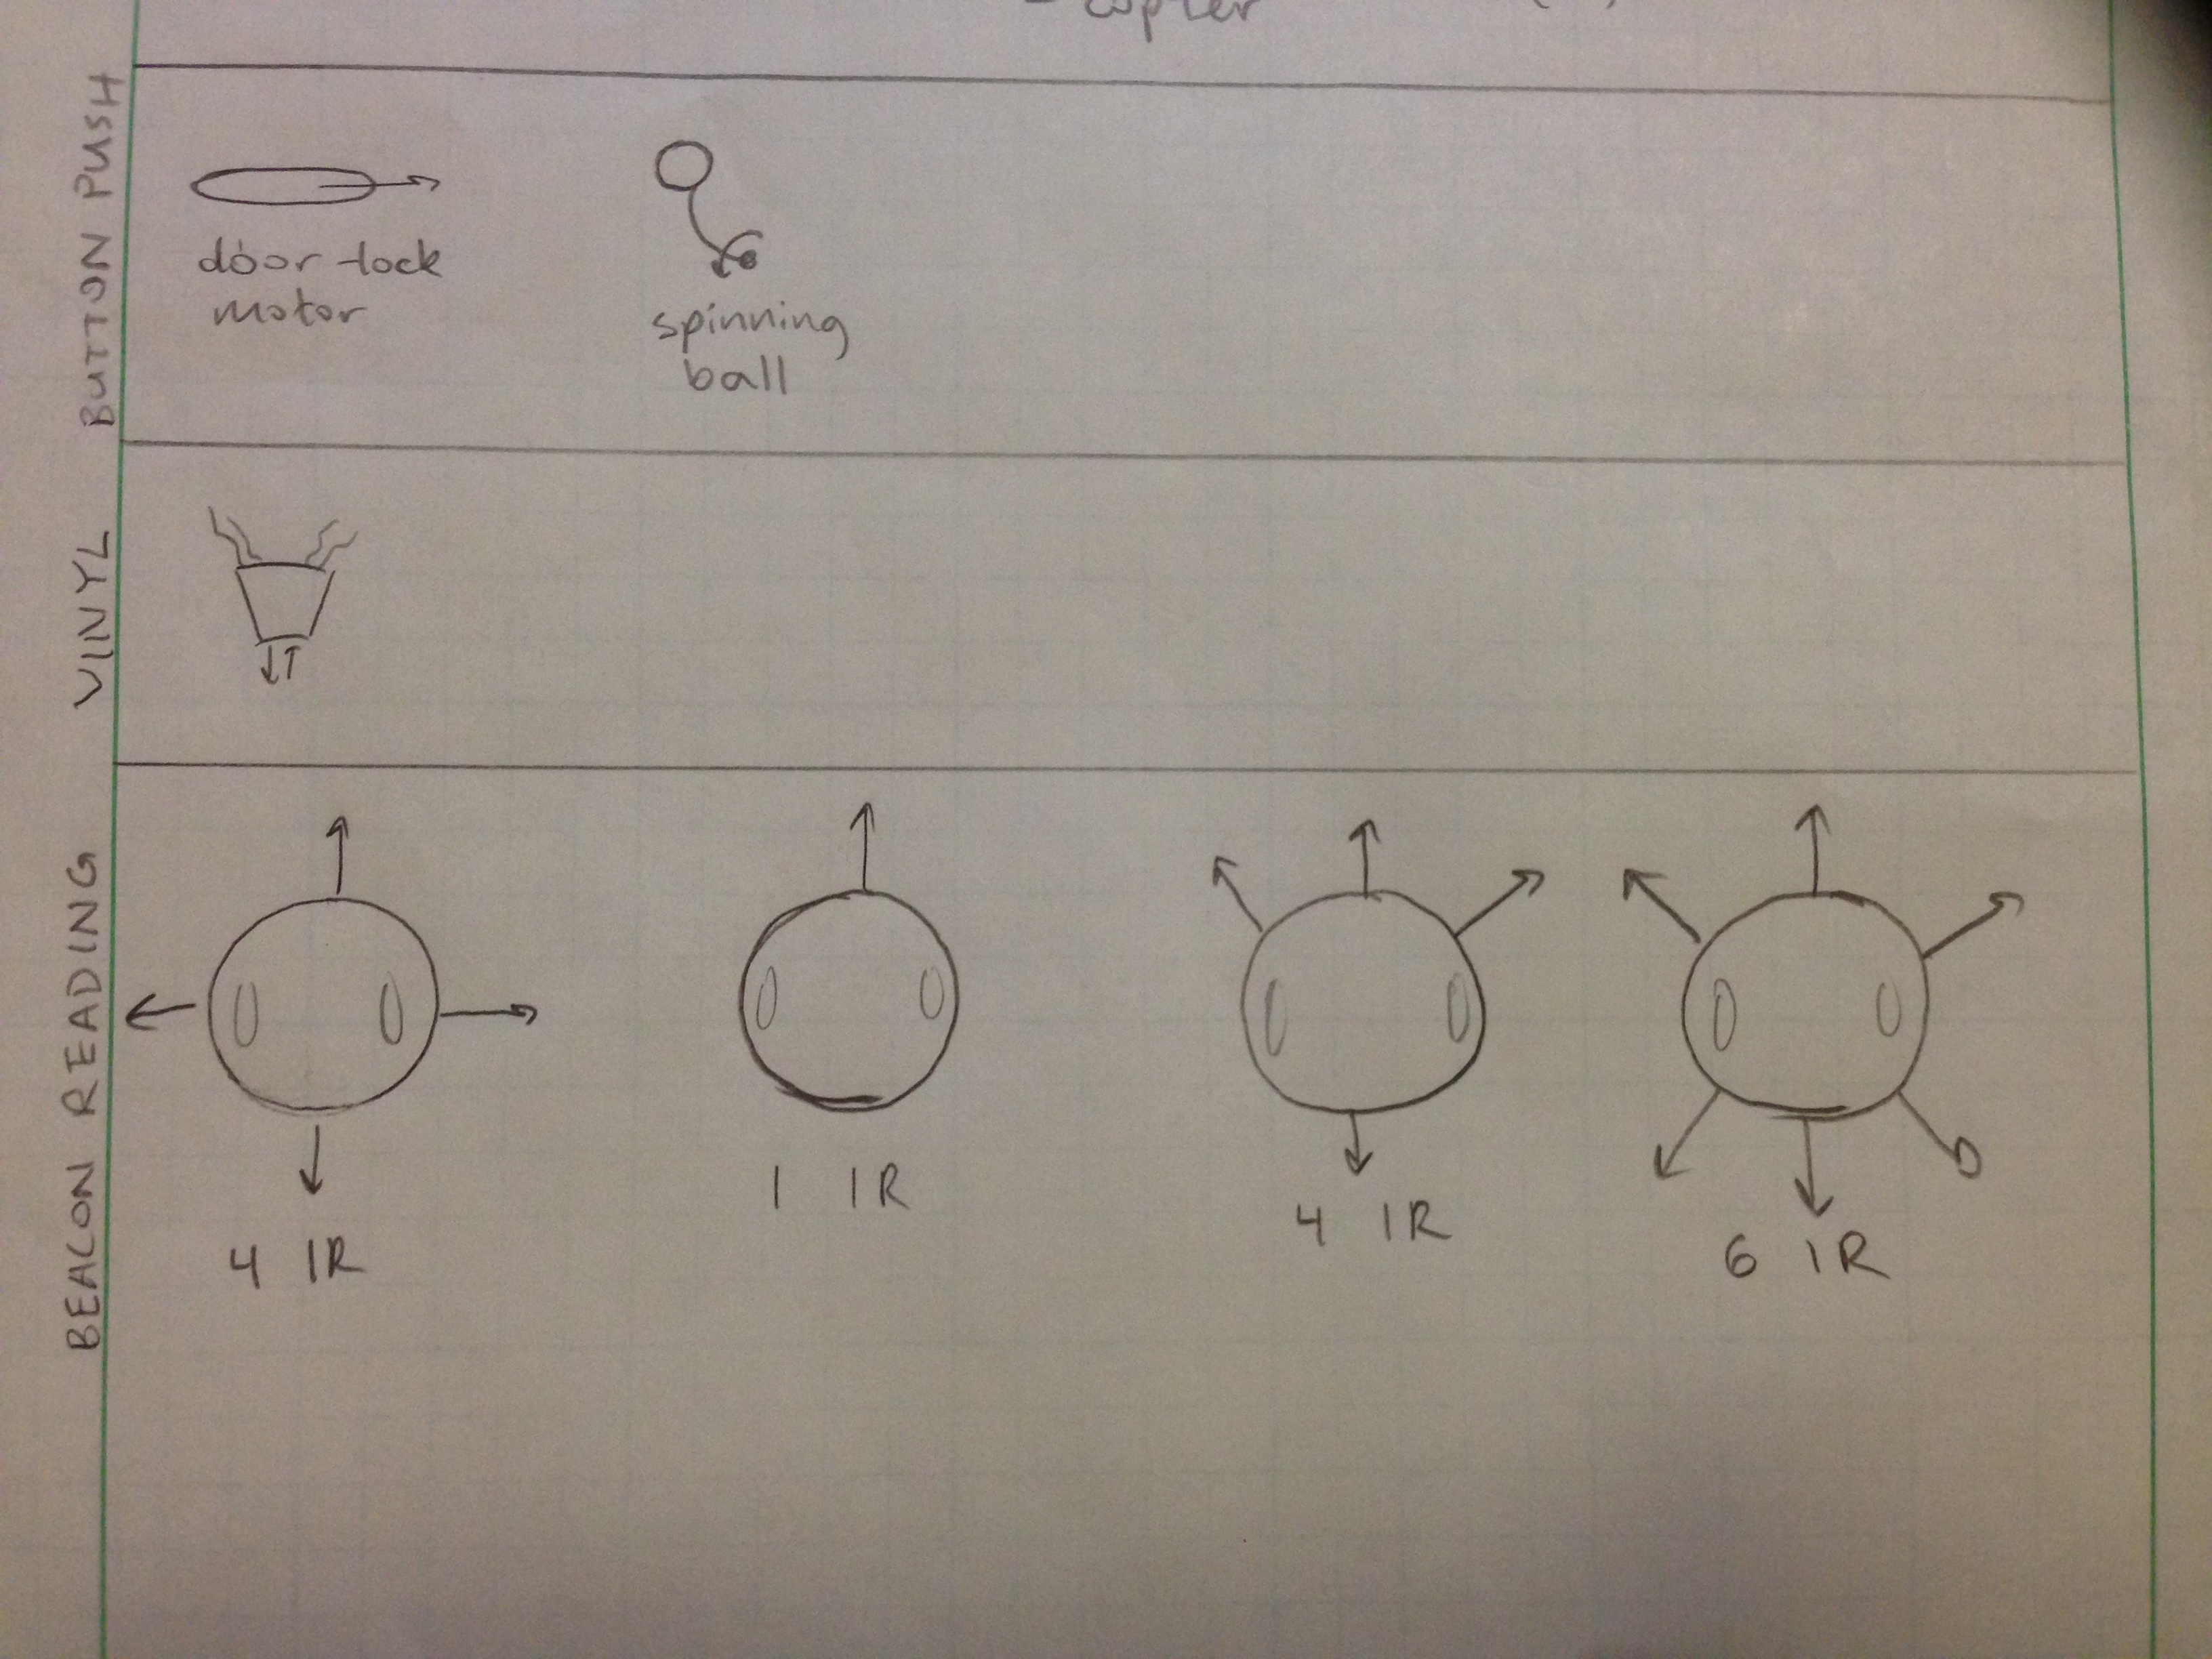 - copter
BUTTON PUSH
door-lock
motor
spinning
ball
VINYL
BEACON READING
4 IR
1 IR
4 IR
6 IR